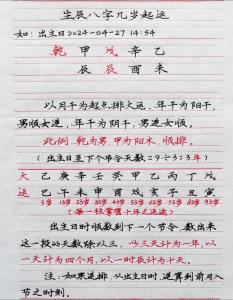 生辰八字几岁起运
如:出生日2024-04-27 14:54
乾 甲 戊 辛 乙
辰 辰 酉 未
以月干为起点,排大运,年干为阳干,
男顺女逆,年干为阴干,男逆女顺。
此例:乾为男,甲为阳木,顺排。
(出生日至下个节令天数=9÷3=3年)
大 己 庚 辛 壬 癸 甲 乙 丙 丁 戊
运 巳 午 未 申 酉 戌 亥 子 丑 寅
3岁 13岁 23岁 33岁 43岁 53岁 63岁 73岁 83岁 93岁
(每一柱掌握十年之运途)
出生日时顺数到下一个节令,数出来
这一段的天数除以三,以三天计为一年,以
一天计为四个月,以一时辰计为十天。
注:如果逆排,从出生日时,逆算到前月入
节之时刻。